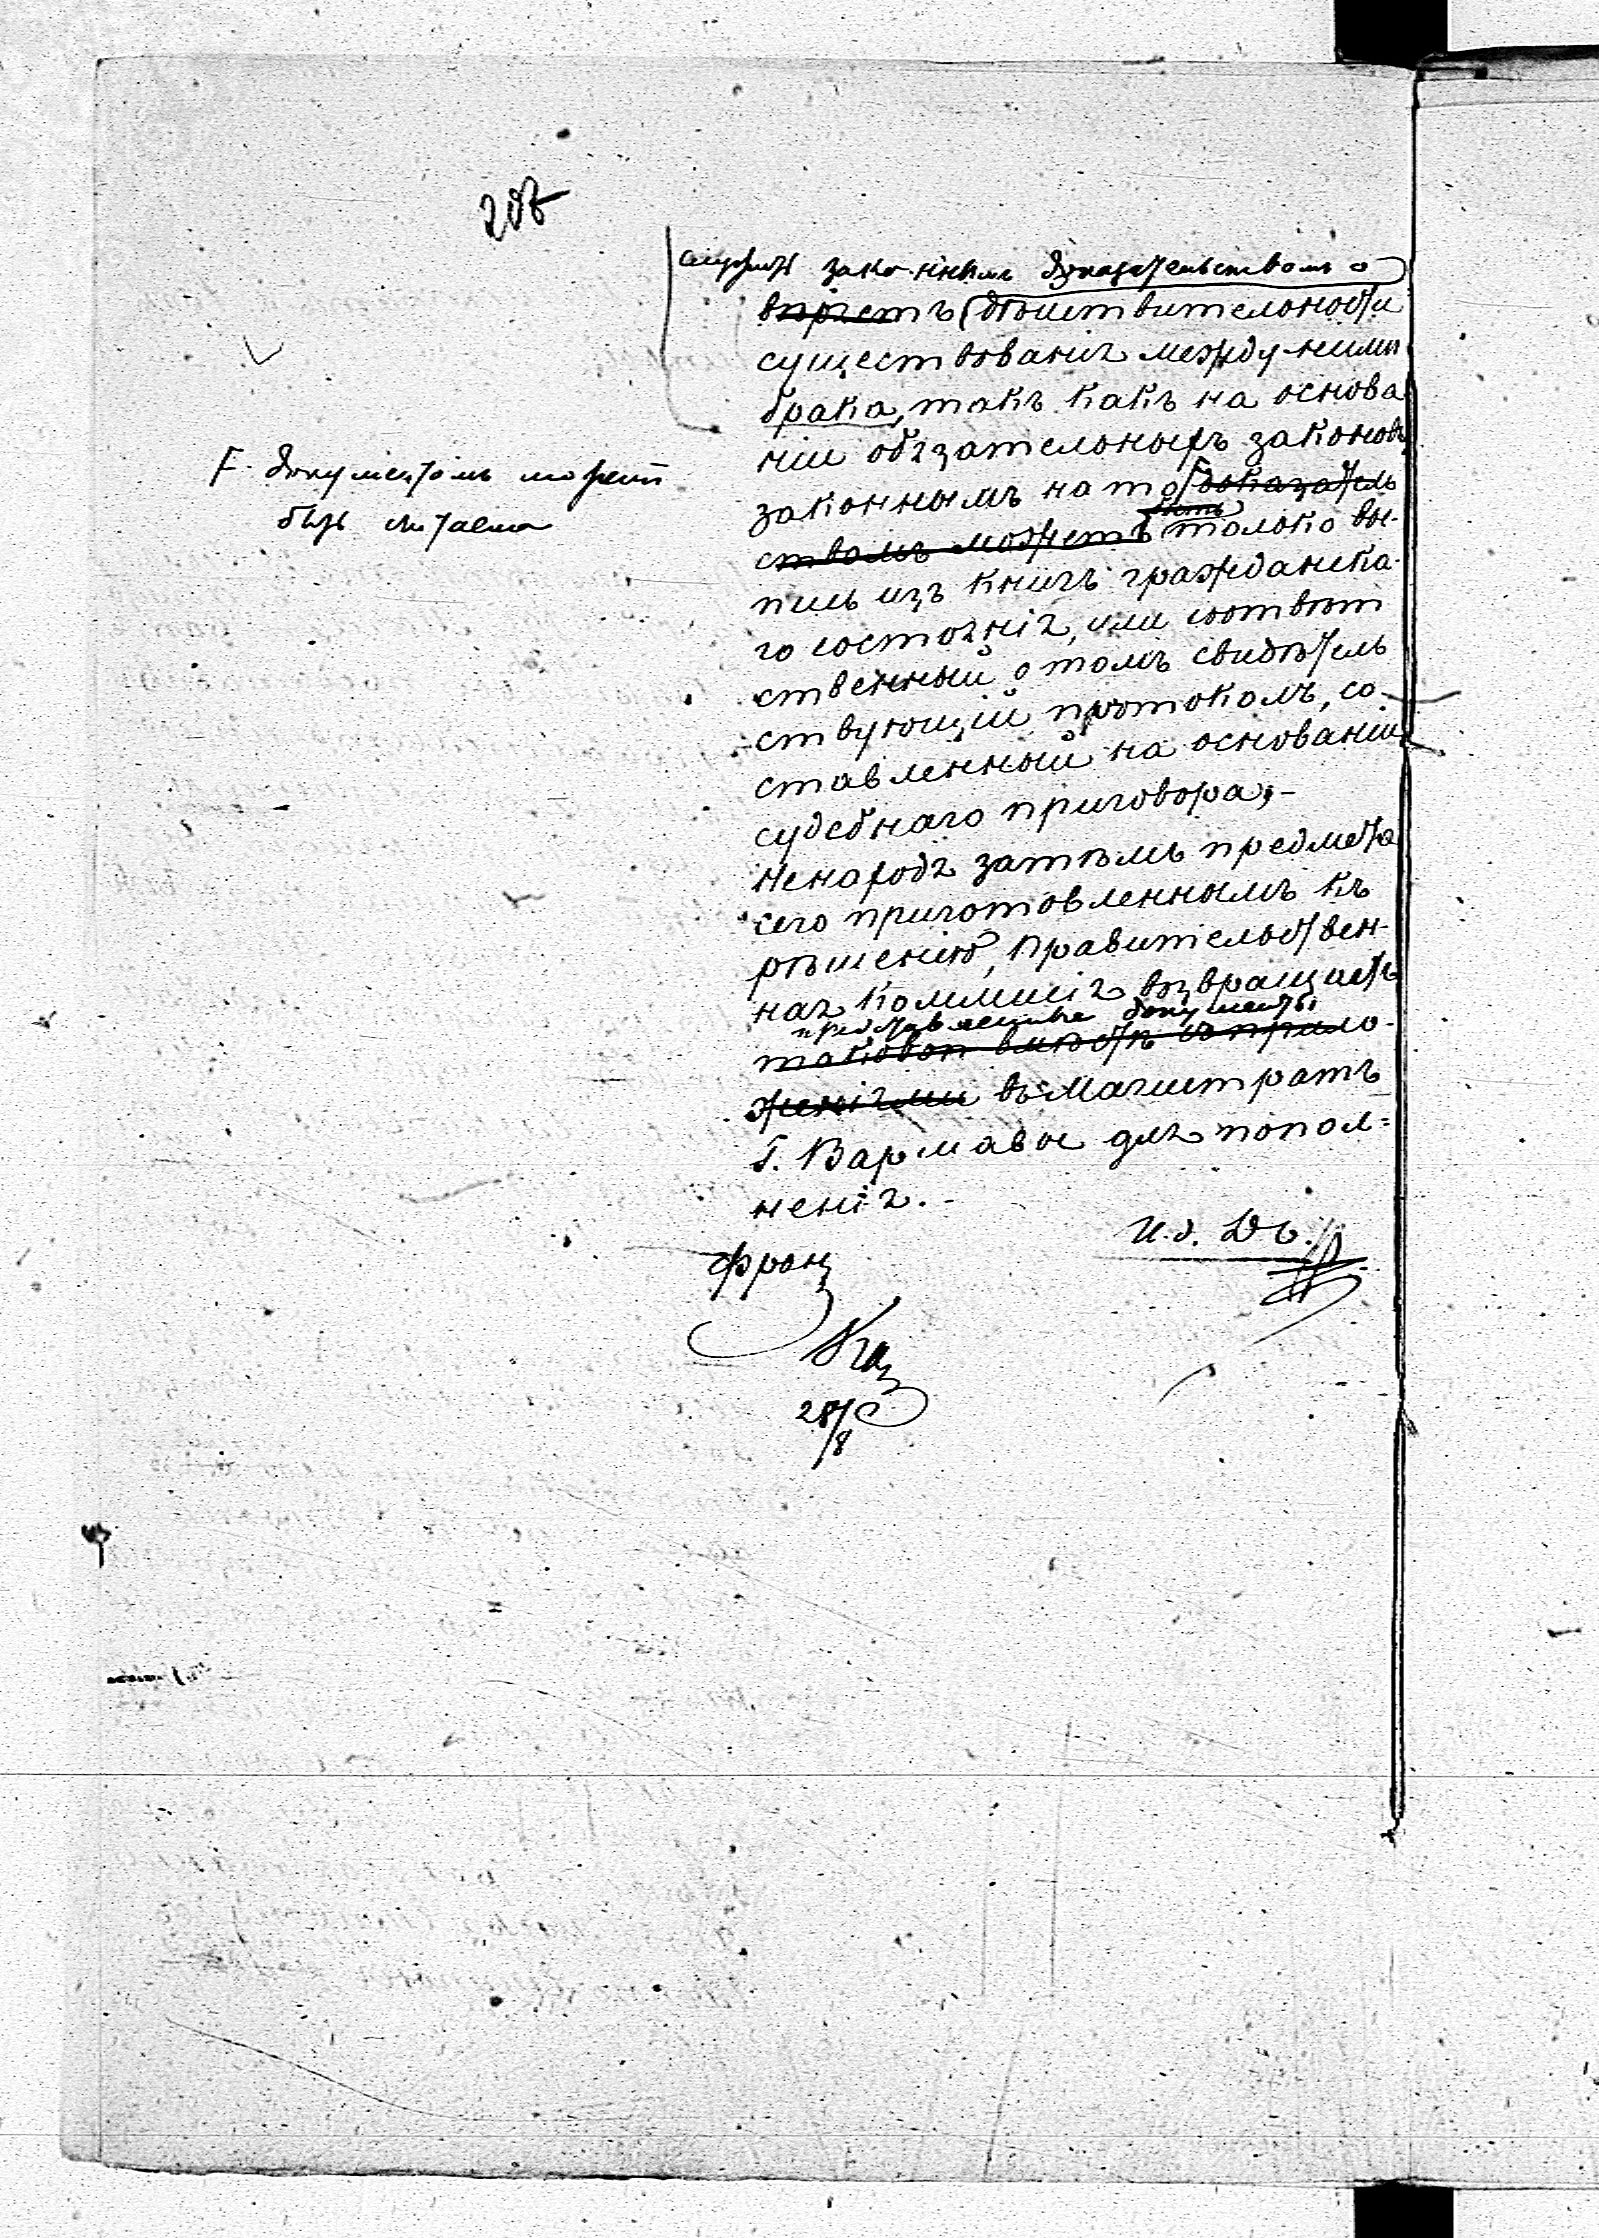 служить законнымъ доказательствомъ о
въритъ дѣйствительности
существованія между ними
брака, такъ какъ на основа
ніи обязательныхъ законовъ
законнымъ на то доказатель
ствомъ можетъ быть только вы-
пись изъ книгъ гражданска-
го состоянія, или соотвѣт
ственный о томъ свидѣтель
ствующій протоколъ, со
ставленный на основаніи
судебнаго приговора,-
Ненаходя затѣмъ предмета
сего приготовленнымъ къ
рѣшенію, Правительствен-
ная Коммисія возвращаетъ
представленные документы
таковой вмѣстѣ съ прило-
женіями въ Магистратъ
Г. Варшавы для попол=
ненія.-
И.д. Дѣ.
Франц
Кац
28/8
F. документомъ можетъ
быть считаема